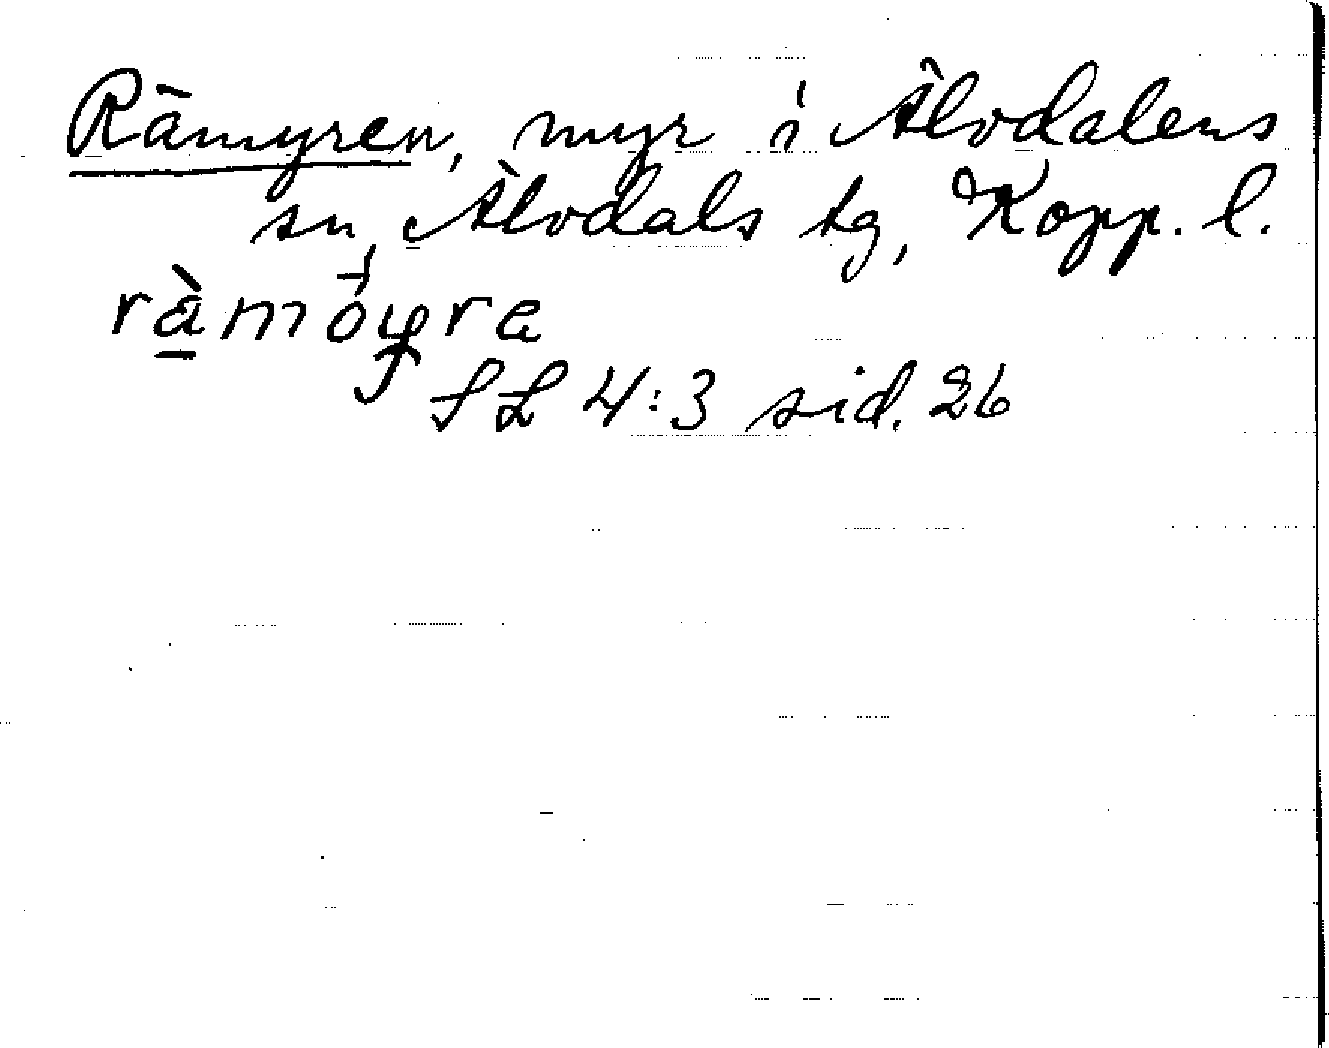 Rämyren, myr i Älvdalens
sn, Älvdals tg, Kopp. l.
SL 4:3 sid. 26